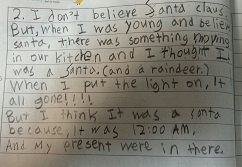 2. I don't believe Santa claus
But, when I was young and believe
santa, there was something moving
in our kitchen and I thought It
was a santa. (and a raindeer.)
When I put the light on, It
all gone!!!!
But I think It was a santa
because, It was 12:00 AM,
And my present were in there.